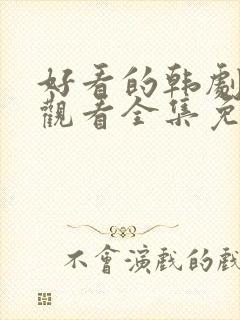 好看的韩劇
觀看全集免
不會演戲的戲